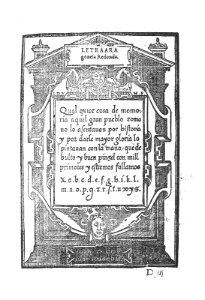 LETRA ARA
gonesa Redonda.
Qual quier cosa de memo
ria aquel gran pueblo como
no lo asentauan por historia
y por darle mayor gloria lo
pintauan con la mano, que de
bulto y buen pinzel con mill
primores y estremos fallamos
a.b.c.d.e.f.g.h.i.k.l.
m.n.o.p.q.r.s.t.u.x.y.z.
D iij